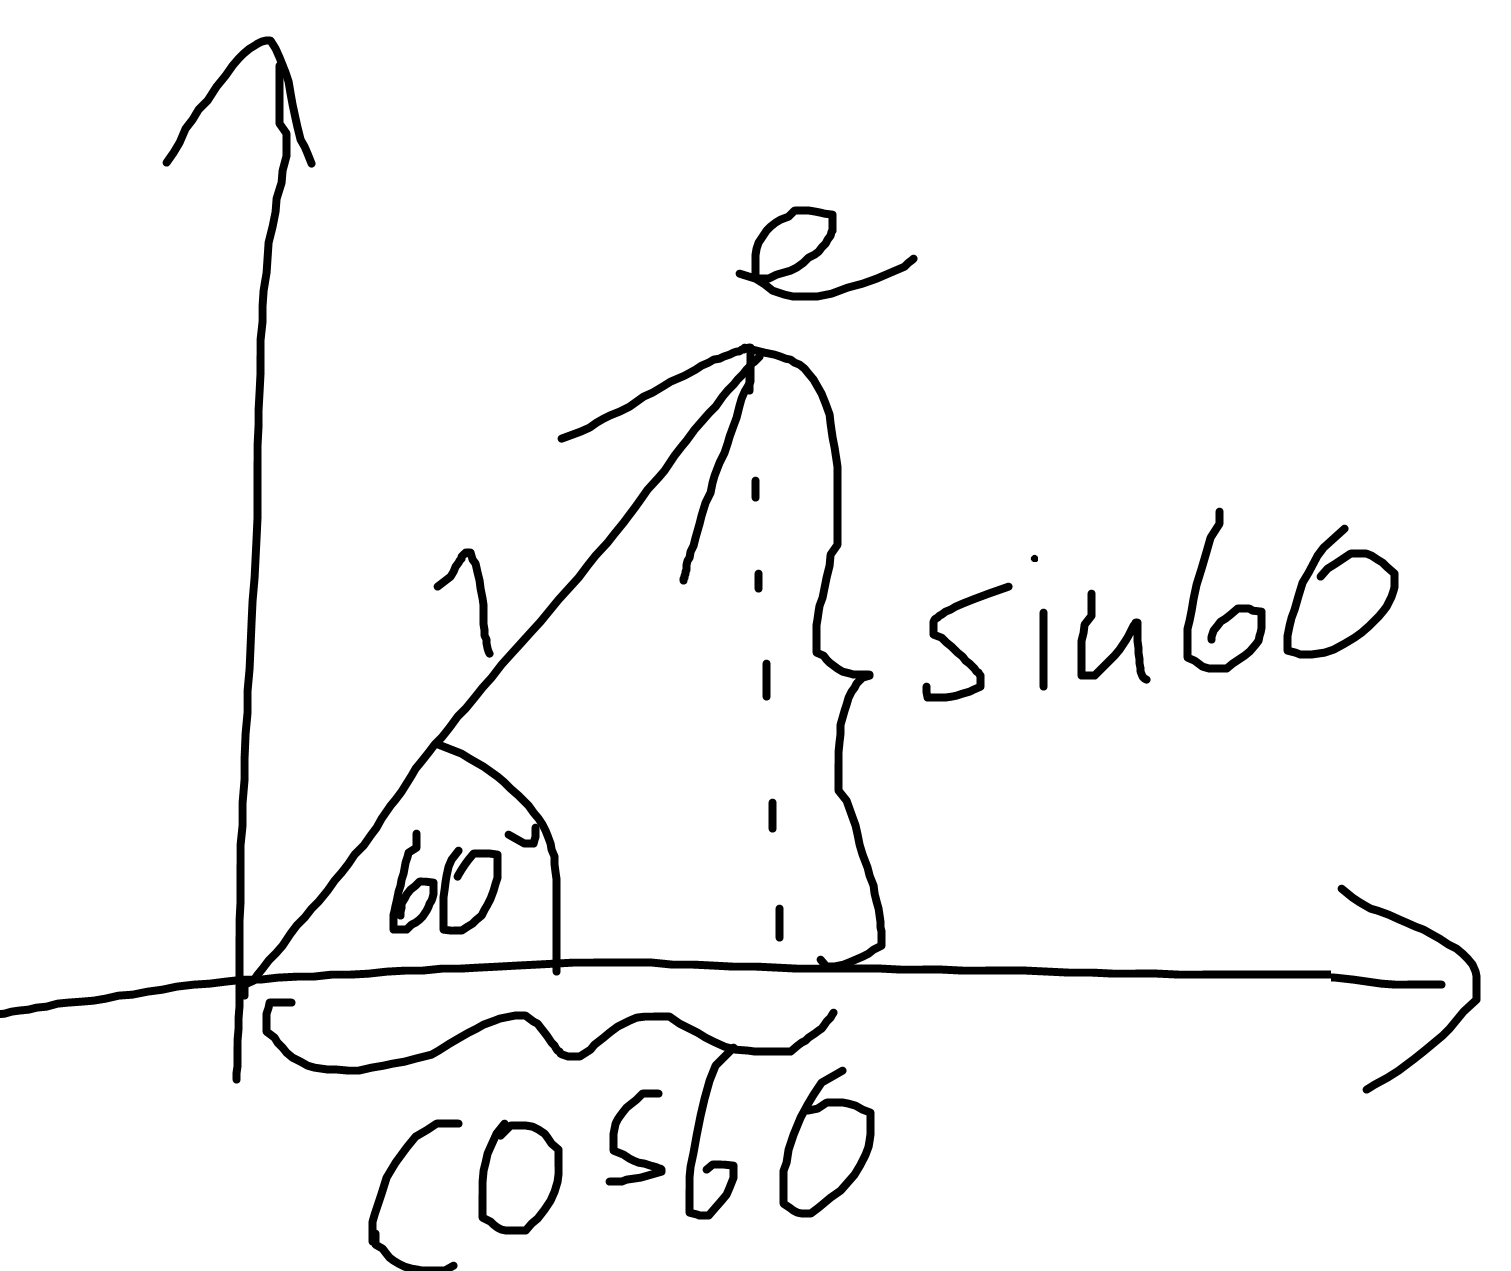 e
1
sin60
60
cos60